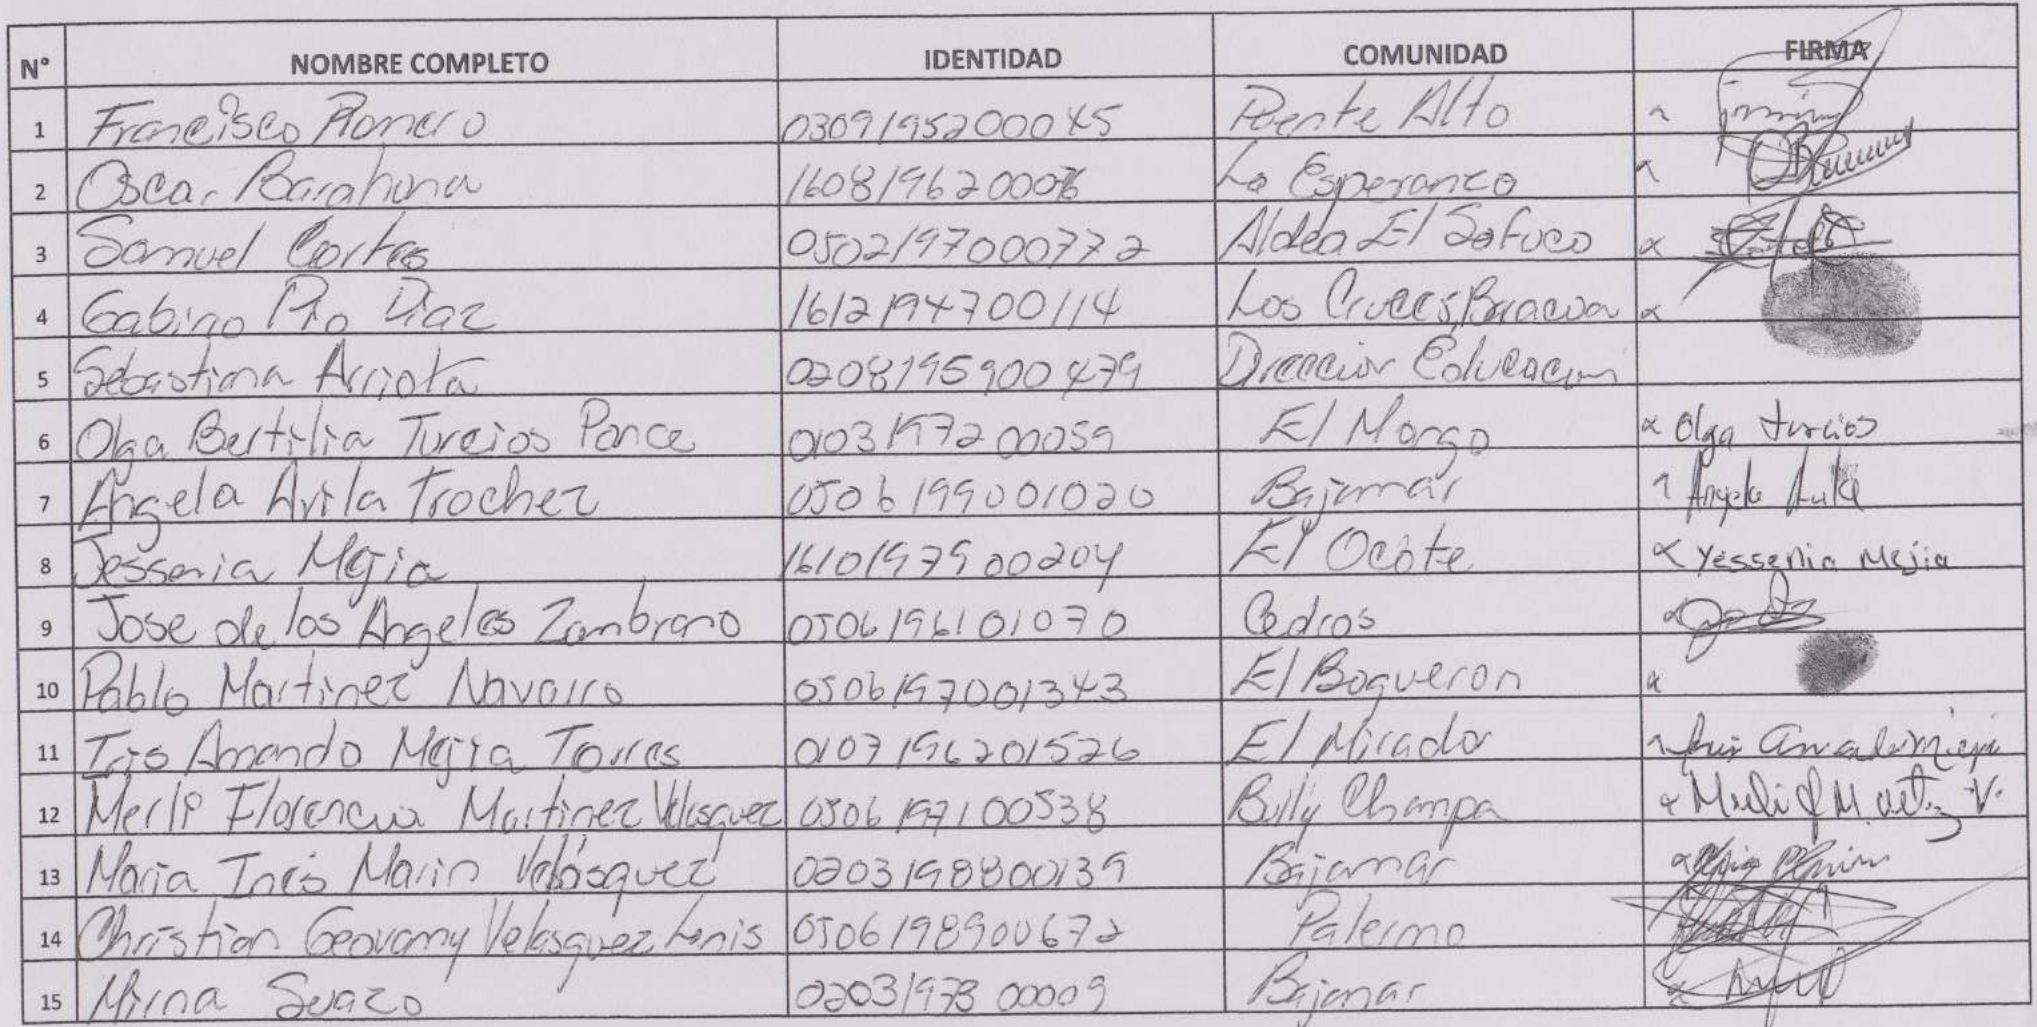 N° NOMBRE COMPLETO IDENTIDAD COMUNIDAD FIRMA
1 Francisco Romero 0309195200045 Puente Alto
2 Oscar Barahona 1608196200076 La Esperanza
3 Samuel Cortes 0502197000772 Aldea El
4 Gabino Pio Diaz 1612194700114 Los Cruces,
5 Sebastiana Arriola 0208195900479 Direccion Educacion
6 Olga Bertilia Turcios Ponce 0103197200059 El Mango x Olga turcios
7 Angela Avila Trochez 0506199001020 Bajamar Angela Avila
8 Jessenia Mejia 1610197900204 El Ocote x Yessenia Mejia
9 Jose de los Angeles Zambrano 0506196101070 Cedros
10 Pablo Martinez Navarro 0506197001343 El Boqueron x
11 Iris Amanda Mejia Torres 0107196201526 El Mirador
12 Merli Florencia Martinez Velasquez 0506197100538 Champa
13 Maria Ines Marin Velasquez 0203198800139 Bajamar
14 Christian Geovanny Velasquez Lenis 0506198900672 Palermo
15 Mirna Suazo 0203197800009 Bajamar